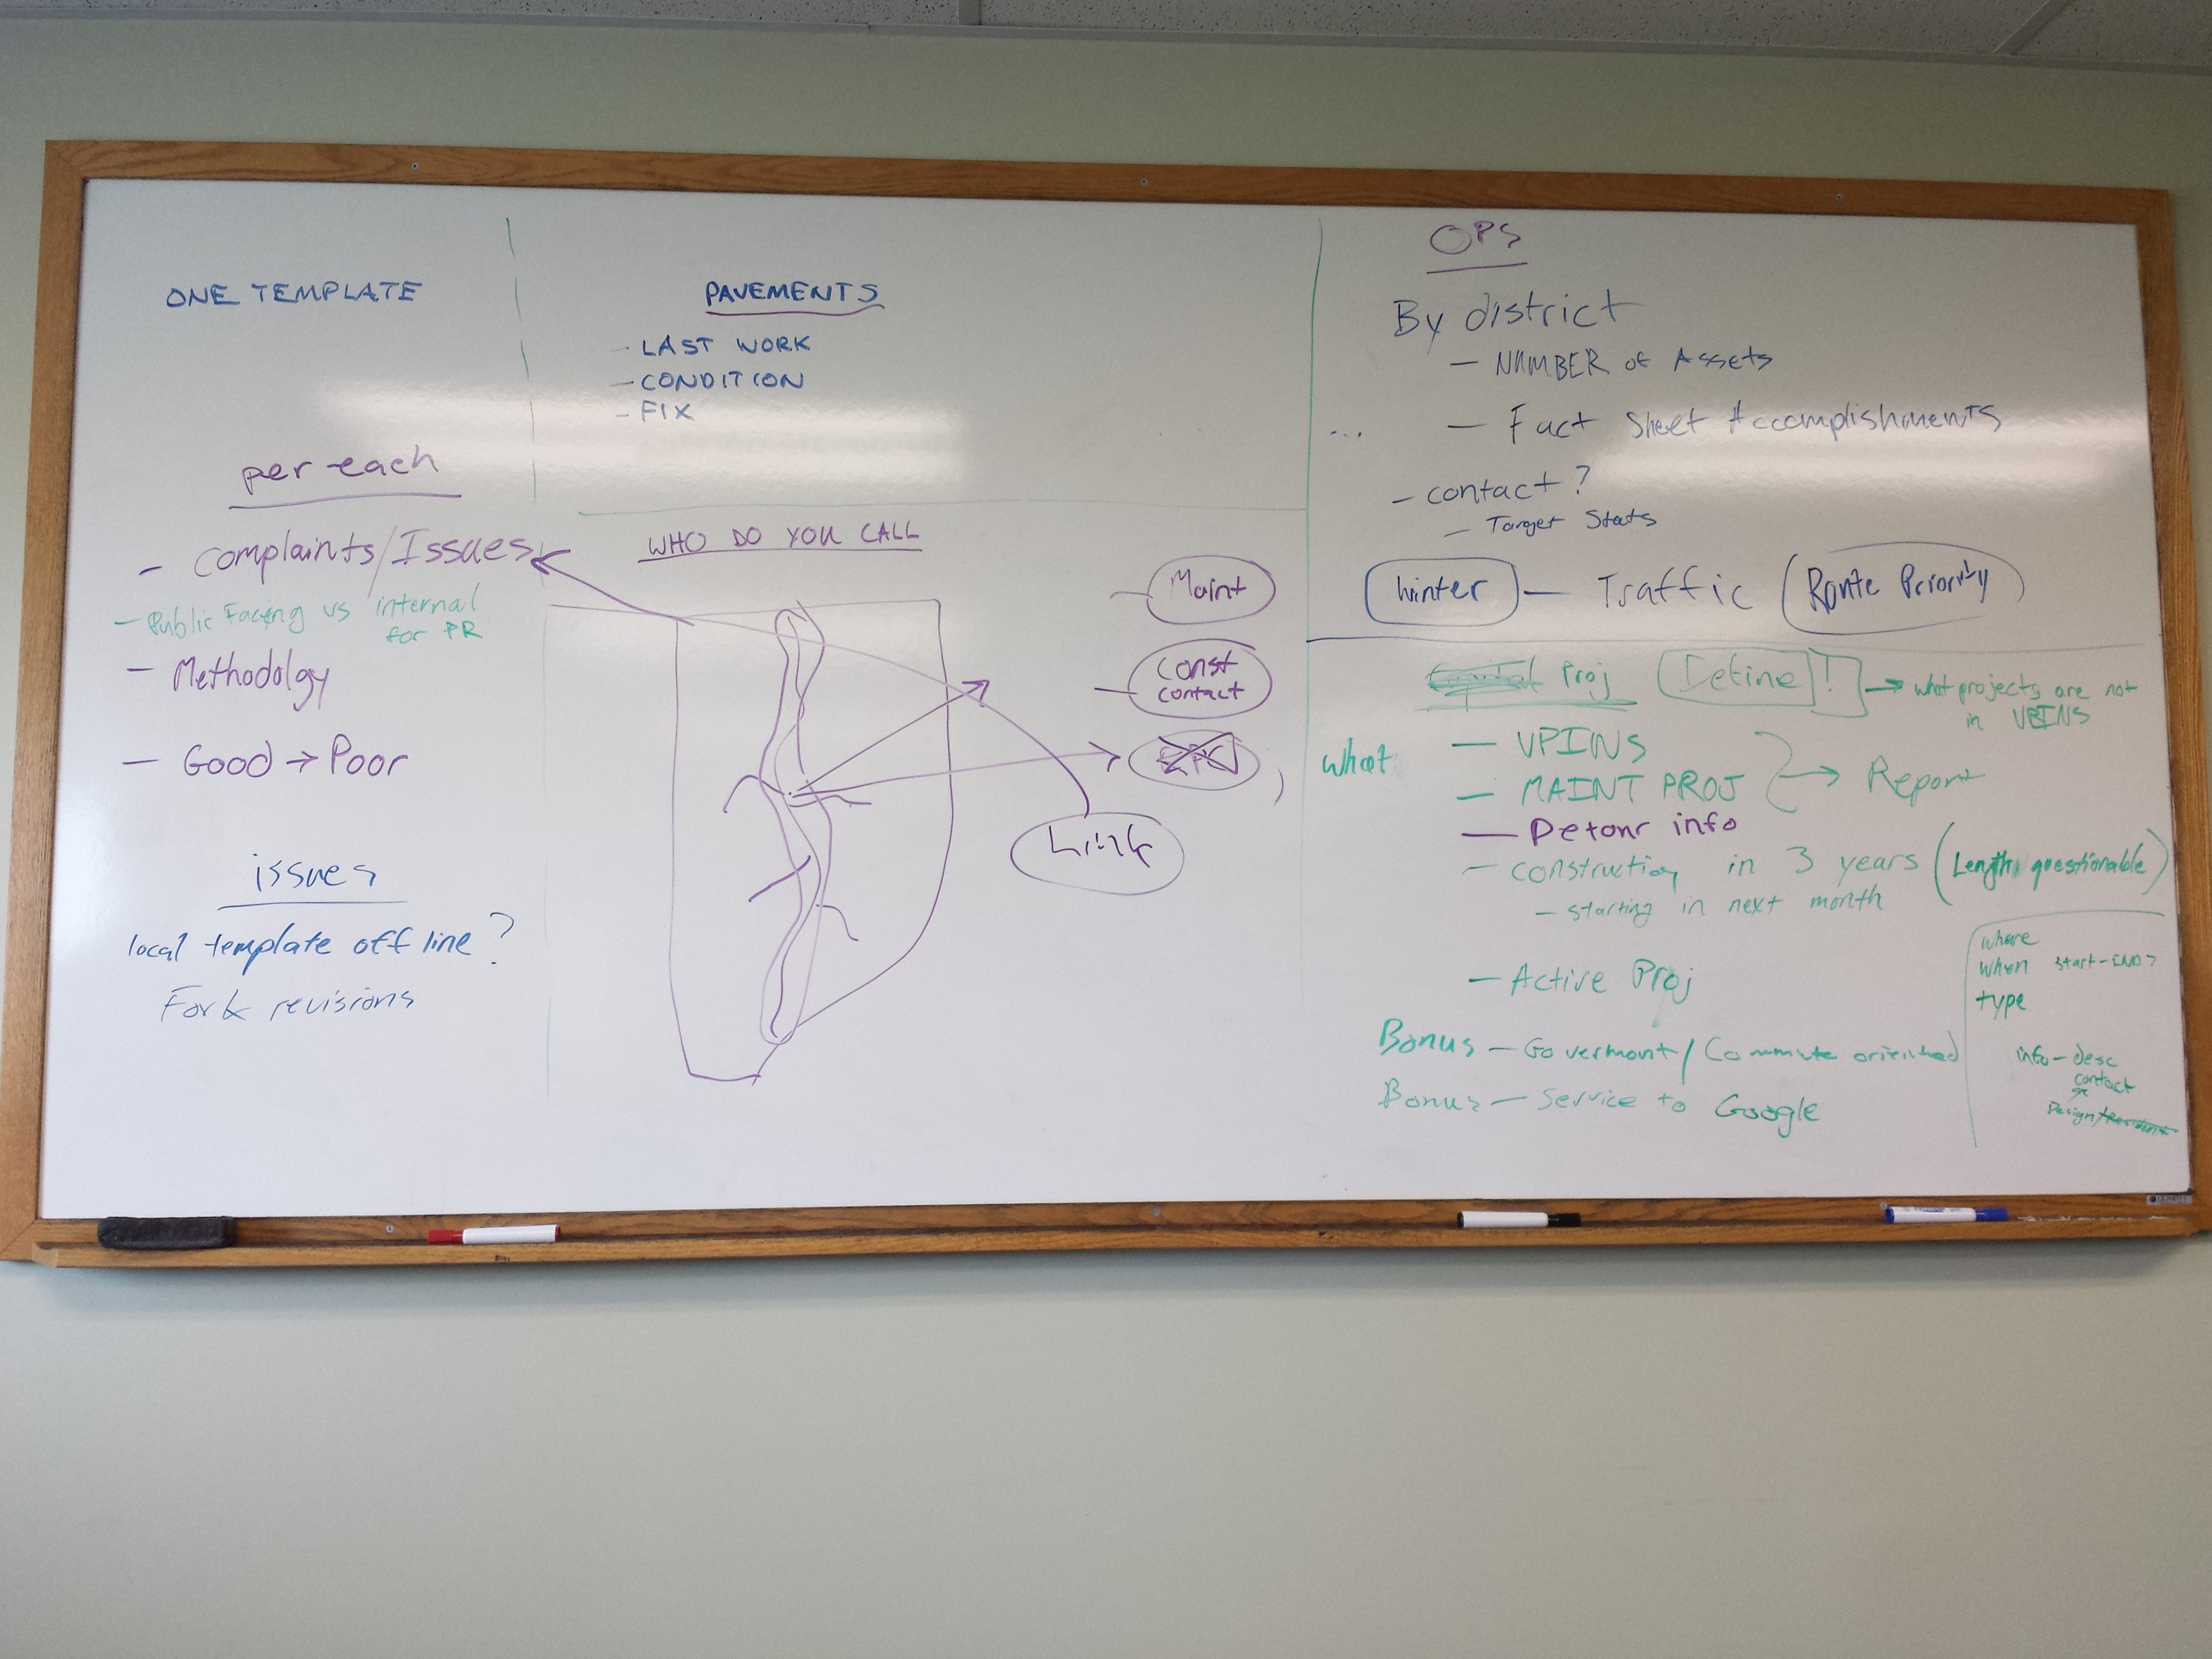 ONE TEMPLATE
per each
- Complaints/Issues
- Public Facing vs internal
for PR
- Methodolgy
- Good → Poor
issues
local template off line?
Fork revisions
PAVEMENTS
- LAST WORK
- CONDITION
- FIX
WHO DO YOU CALL
- Maint
- Const
contact
Link
OPS
By district
- NUMBER of Assets
...
- Fact Sheet Accomplishments
- contact?
- Target Stats
Winter - Traffic (Route Priority)
Proj Define! → what projects are not
in
what
- VPINS
- MAINT PROJ → Report
- Detour info
- construction in 3 years (Length questionable)
- starting in next month
- Active Proj
Bonus - Govermont/Commute oriented
Bonus - Service to Google
where
when start-END?
type
info - desc
contact
Design/